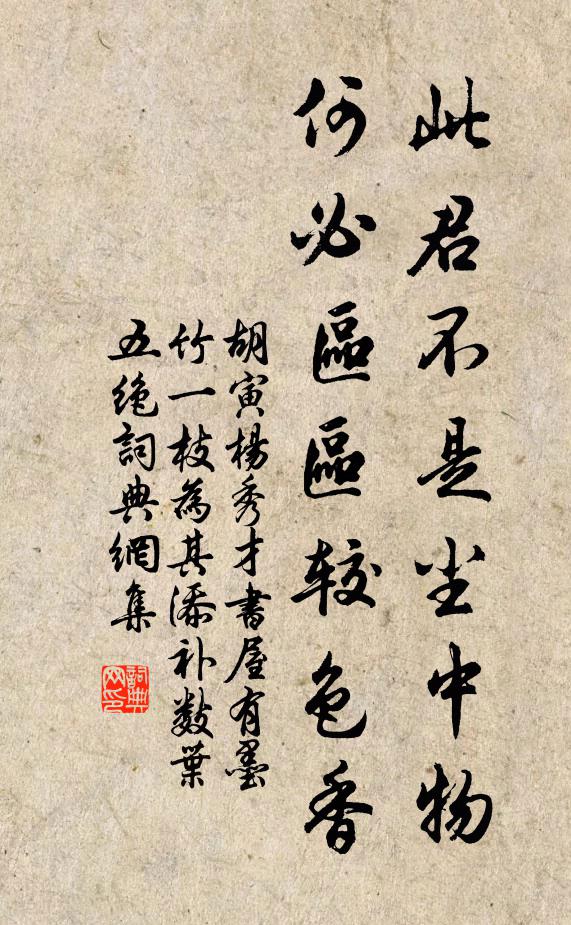 此君不是尘中物
何必區區较色香
胡寅楊秀才書屋有墨
竹一枝為其添补數葉
五绝詞典網集
詞典
网印